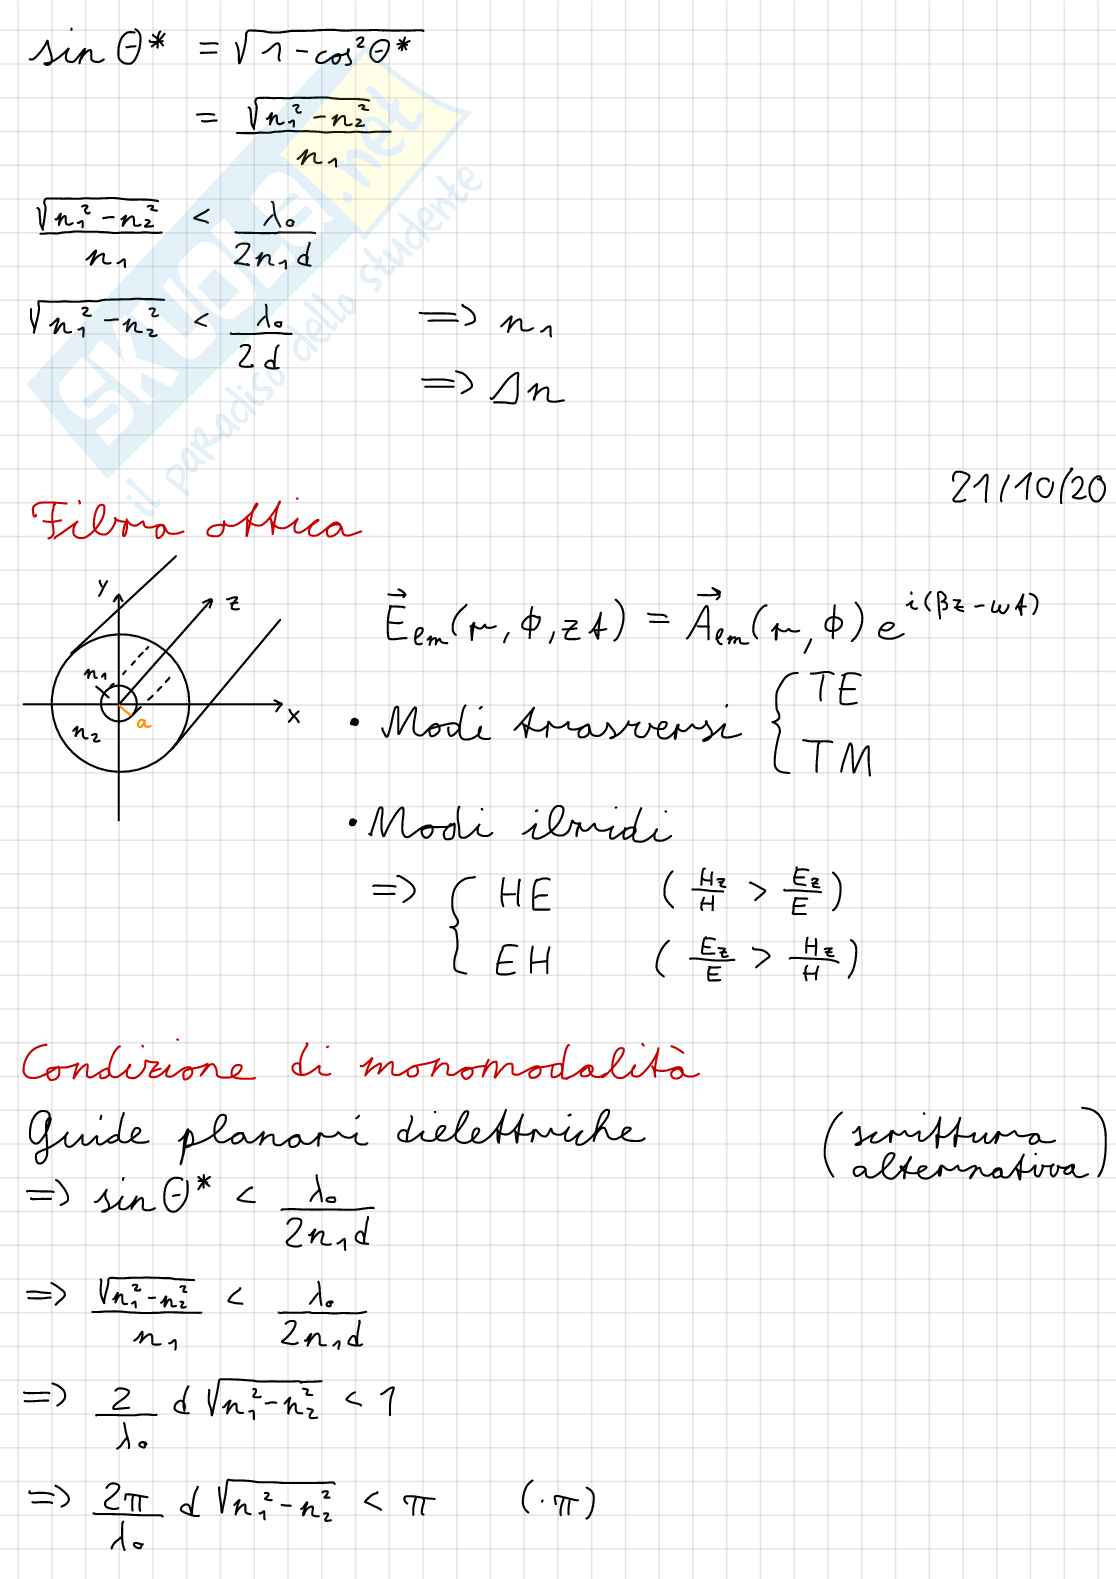 sin θ* = √(1 - cos²θ*)
= √(n₁² - n₂²) / n₁
√(n₁² - n₂²) / n₁ < λ₀ / 2n₁d
√(n₁² - n₂²) < λ₀ / 2d => n₁
=> Δn
SKUOLA.net
il paradiso dello studente
21/10/20
Fibra ottica
y
z
n₁
x
a
n₂
E⃗ₑₘ(r, ϕ, z t) = A⃗ₑₘ(r, ϕ) e^{i(βz - ωt)}
• Modi trasversi { TE
TM
• Modi ibridi
=> { HE (Hz/H > Ez/E)
EH (Ez/E > Hz/H)
Condizione di monomodalità
Guide planari dielettriche (scrittura alternativa)
=> sin θ* < λ₀ / 2n₁d
=> √(n₁² - n₂²) / n₁ < λ₀ / 2n₁d
=> 2/λ₀ d √(n₁² - n₂²) < 1
=> 2π/λ₀ d √(n₁² - n₂²) < π (·π)